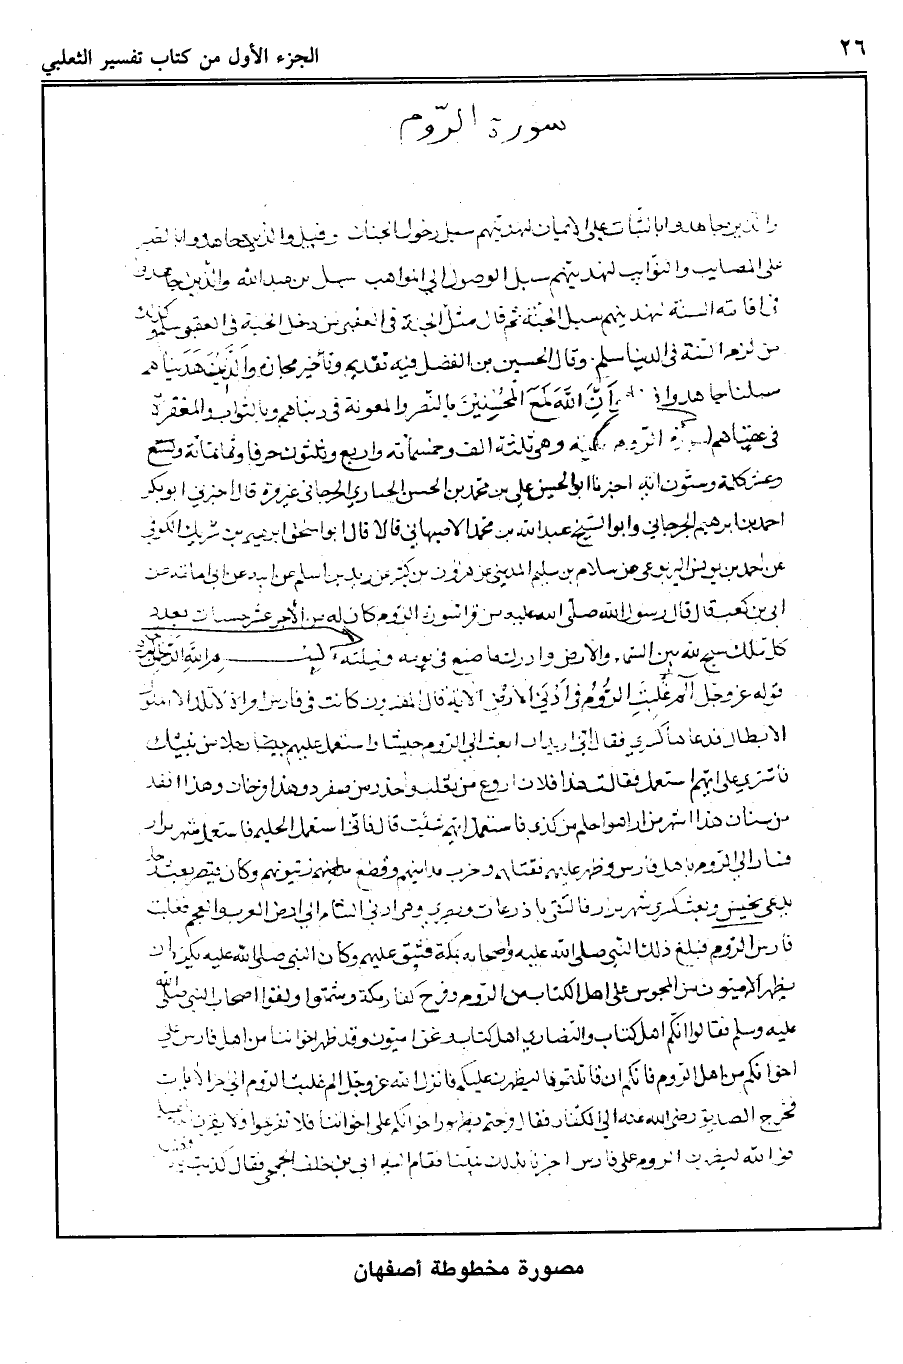 ٢٦
الجزء الأول من كتاب تفسير الثعلبي
سورة الرّوم
والذين جاهدوا بالثبات على الايمان لنهدينهم سبل دخول الجنات وقيل والذين جاهدوا بالصبر
على المصايب والنوايب لنهدينهم سبل الوصول الى المواهب سهل بن عبد الله والذين جاهدوا
فى اقامة السنة لنهدينهم سبل الجنة ثم قال مثل الجنة فى العقبى من دخل الجنة فى العقبى سلم كذلك
من لزم السنة فى الدنيا سلم وقال الحسين بن الفضل فيه تقديم وتأخير مجازه والذين هديناهم
سبلنا جاهدوا فينا وَاِنَّ اللّٰهَ لَمَعَ الْمُحْسِنِيْنَ بالنصر والمعونة فى دنياهم وبالثواب والمغفرة
فى عقباهم سورة الرّوم مكية وهى ثلثة الف وخمسمائة واربع وثلثون حرفا وثمانمائة وتسع
وعشر كلمة وستون اية اخبرنا ابو الحسين على بن محمد بن الحسن الجرجانى غير مرة قال اخبرنى ابو بكر
احمد بن ابرهيم الجرجانى وابو الشيخ عبد الله بن محمد الاصبهانى قالا قال ابو اسحق ابرهيم بن شريك الكوفى
عن احمد بن يونس اليربوعى عن سلام بن سليم المدينى عن هرون بن كثير عن زيد بن اسلم عن ابيه عن ابى امامة عن
ابى بن كعب قال قال رسول الله صلى الله عليه من قرا سورة الروم كان له من الاجر عشر حسنات بعدد
كل ملك سبح لله بين السماء والارض وادرك ما ضيع فى يومه وليلته بسم الله الرحمن الرحيم
قوله عز وجل الم غُلبت الرُّوُمُ فى اَدْنَى الاَرْضِ الاية قال المفسرون كانت فى فارس امراة لا تلد الا الملوك
الابطال فدعاها كسرى فقال انى اريد ان ابعث الى الروم جيشا واستعمل عليهم رجلا من بنيك
فاشيرى على ايهم استعمل فقالت هذا فلان اروع من ثعلب واحذر من صقر وهذا فرخان وهذا انفذ
من سنان هذا شهريزاد هو احلم من كذى فاستعمل ايهم شئت قال فانى استعمل الحليم فاستعمل شهريزاد
فسار الى الروم باهل فارس وظهر عليهم فقتلهم وخرب مداينهم وقطع زيتونهم وكان قيصر بعث رجلا
يدعى يحنس وبعث كسرى شهريزاد فالتقى باذرعات وبصرى وهى ادنى الشام الى ارض العرب والعجم فغلبت
فارس الروم فبلغ ذلك النبى صلى الله عليه واصحابه بمكة فشق عليهم وكان النبى صلى الله عليه يكره ان
يظهر الاميون من المجوس على اهل الكتاب من الروم وفرح كفار مكة وشمتوا ولقوا اصحاب النبى صلى الله
عليه وسلم فقالوا انكم اهل كتاب والنصارى اهل كتاب ونحن اميون وقد ظهر اخواننا من اهل فارس على
اخوانكم من اهل الروم فانكم ان قاتلتمونا لنظهرن عليكم فانزل الله عز وجل الم غلبت الروم الى اخر الايات
فخرج الصديق رضى الله عنه الى الكفار فقال فرحتم بظهور اخوانكم على اخواننا فلا تفرحوا ولا يقرن
فوالله ليظهرن الروم على فارس اخبرنا بذلك نبينا فقام اليه ابى بن خلف الجمحى فقال كذبت
مصورة مخطوطة أصفهان